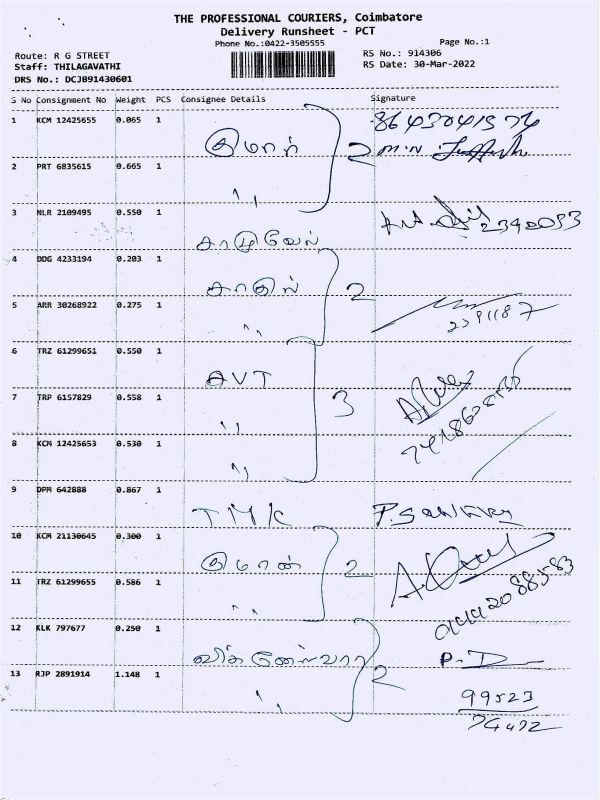 THE PROFESSIONAL COURIERS, Coimbatore
Delivery Runsheet - PCT
Phone No.:0422-3505555
Page No.:1
Route: R G STREET
RS No.: 914306
Staff: THILAGAVATHI
RS Date: 30-Mar-2022
DRS No.: DCJB91430601
S No Consignment No Weight PCS Consignee Details Signature
1 KCM 12425655 0.065 1 குமார் 2
2 PRT 6835615 0.665 1 ,,
3 NLR 2109495 0.550 1 சாமுவேல்
4 DDG 4233194 0.203 1 2
5 ARR 30268922 0.275 1 ,,
6 TRZ 61299651 0.550 1 AVT 3
7 TRP 6157829 0.558 1 ,,
8 KCM 12425653 0.530 1 ,,
9 DPM 642888 0.867 1 TMK
10 KCM 21130645 0.300 1 2
11 TRZ 61299655 0.586 1 ,,
12 KLK 797677 0.250 1 2
13 RJP 2891914 1.148 1 ,, 99523